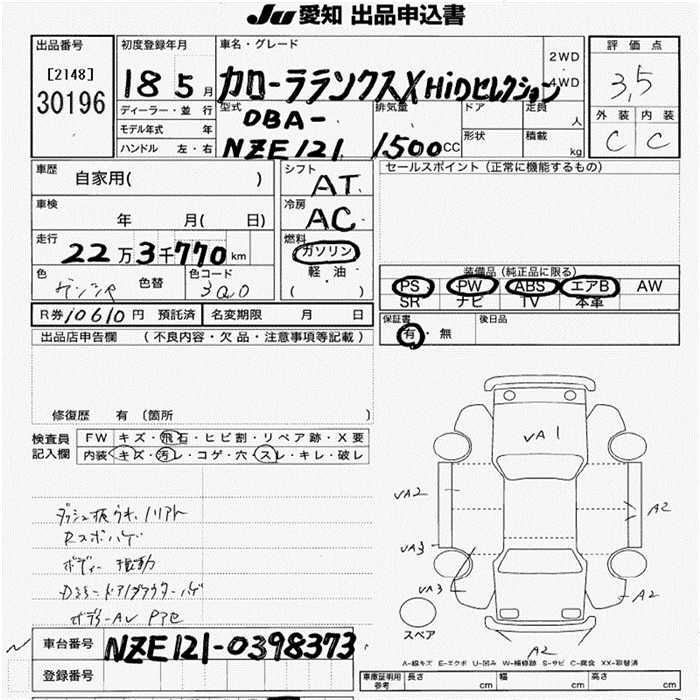 JU 愛知 出品申込書
出品番号
[2148]
30196
初度登録年月
18 5 月
ディーラー・並 行
モデル年式 年
ハンドル 左・右
車名・グレード
カローラランクスX HIDセレクション
2WD
・
4WD
型式
DBA-
NZE121
排気量
1500 CC
ドア
定員
人
形状
積載
kg
評 価 点
3,5
外 装 内 装
C C
車歴
自家用( )
車検
年 月( 日)
走行
22 万 3 千 770 km
色
色替
色コード
シフト
AT
冷房
AC
燃料
ガソリン
軽 ・ 油
( )
セールスポイント (正常に機能するもの)
装備品 (純正品に限る)
PS PW ABS エアB AW
SR ナビ TV 本革
R券 10610 円 預託済
名変期限 月 日
保証書
有 ・ 無
後日品
出品店申告欄 (不良内容・欠 品・注意事項等記載)
修復歴 有 (箇所 )
検査員
記入欄
FW キズ・飛石・ヒビ割・リペア跡・X要
内装 キズ・汚レ・コゲ・穴・スレ・キレ・破レ
VA1
VA2
A2
VA3
VA3
A2
A2
スペア
A-線キズ E-エクボ U-凹み W-補修跡 S-サビ C-腐食 XX-取替済
車台番号 NZE121-0398373
登録番号
車庫証明用
参考
長さ cm 幅 cm 高さ cm